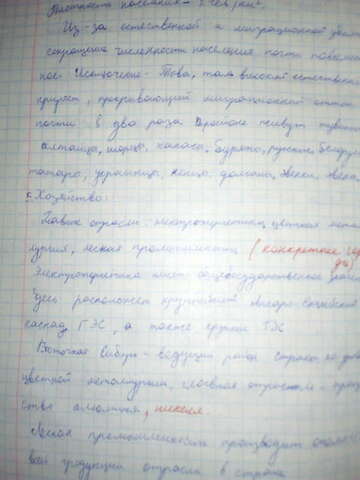 Плотность населения - 2 чел/км².
Из-за естественной и миграционной
сокращение численности населения почти
Исключение - Това, там высокий естественн
прирост, миграционный отток
почти в два раза. В районе живут тувинцы
алтайцы, шорцы, хакасы, буряты, русские, белорусы
татары, украинцы, немцы, долганы, эвенки, эвены
Хозяйство:
Главные отрасли: электроэнергетика, цветная метал
лургия, лесная промышленность (конкретнее гор
да)
Электроэнергетика имеет общегосударственное значен
здесь расположен крупнейший Ангаро-Енисейский
каскад ГЭС, а также крупные ТЭС
Восточная Сибирь - ведущий район страны по
цветной металлургии, главная отрасль - произ
ство алюминия, никеля.
Лесная промышленность производит около
всей продукции отрасли в стране